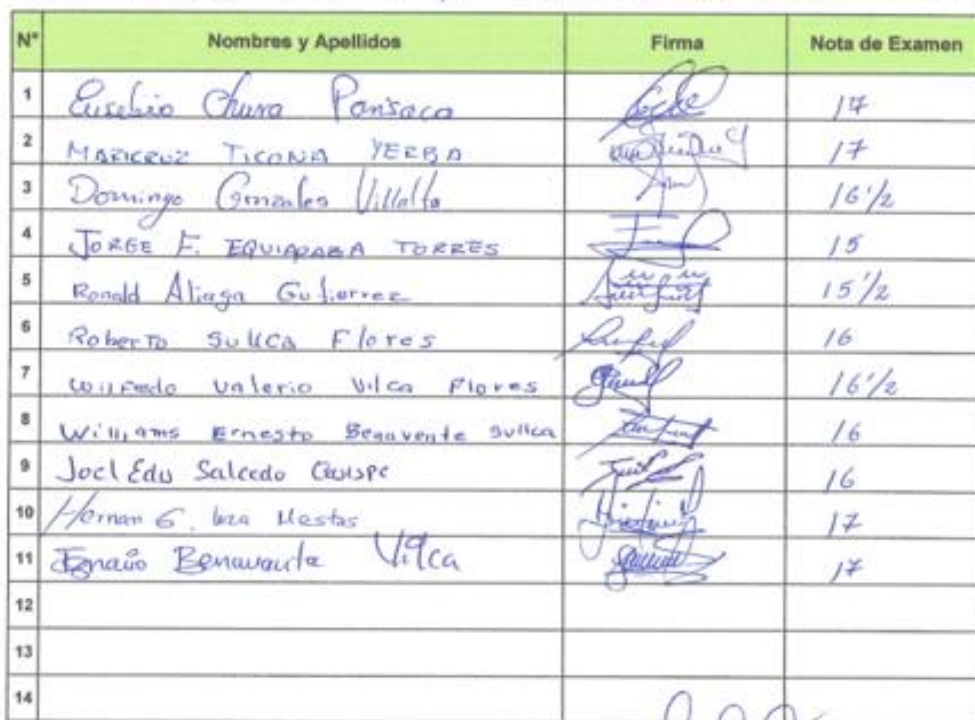 N° Nombres y Apellidos Firma Nota de Examen
1 Eusebio Chura Pansaca 17
2 MARICRUZ TICONA YERBA 17
3 Domingo Gonzales Villalta 16 1/2
4 JORGE F. EQUIAPAZA TORRES 15
5 Ronald Aliaga Gutierrez 15 1/2
6 Roberto Sullca Flores 16
7 Wilfredo Valerio Vilca Flores 16 1/2
8 Williams Ernesto Benavente Sullca 16
9 Joel Edu Salcedo Quispe 16
10 Hernan G. Mestas 17
11 Ignacio Benavente Vilca 17
12
13
14